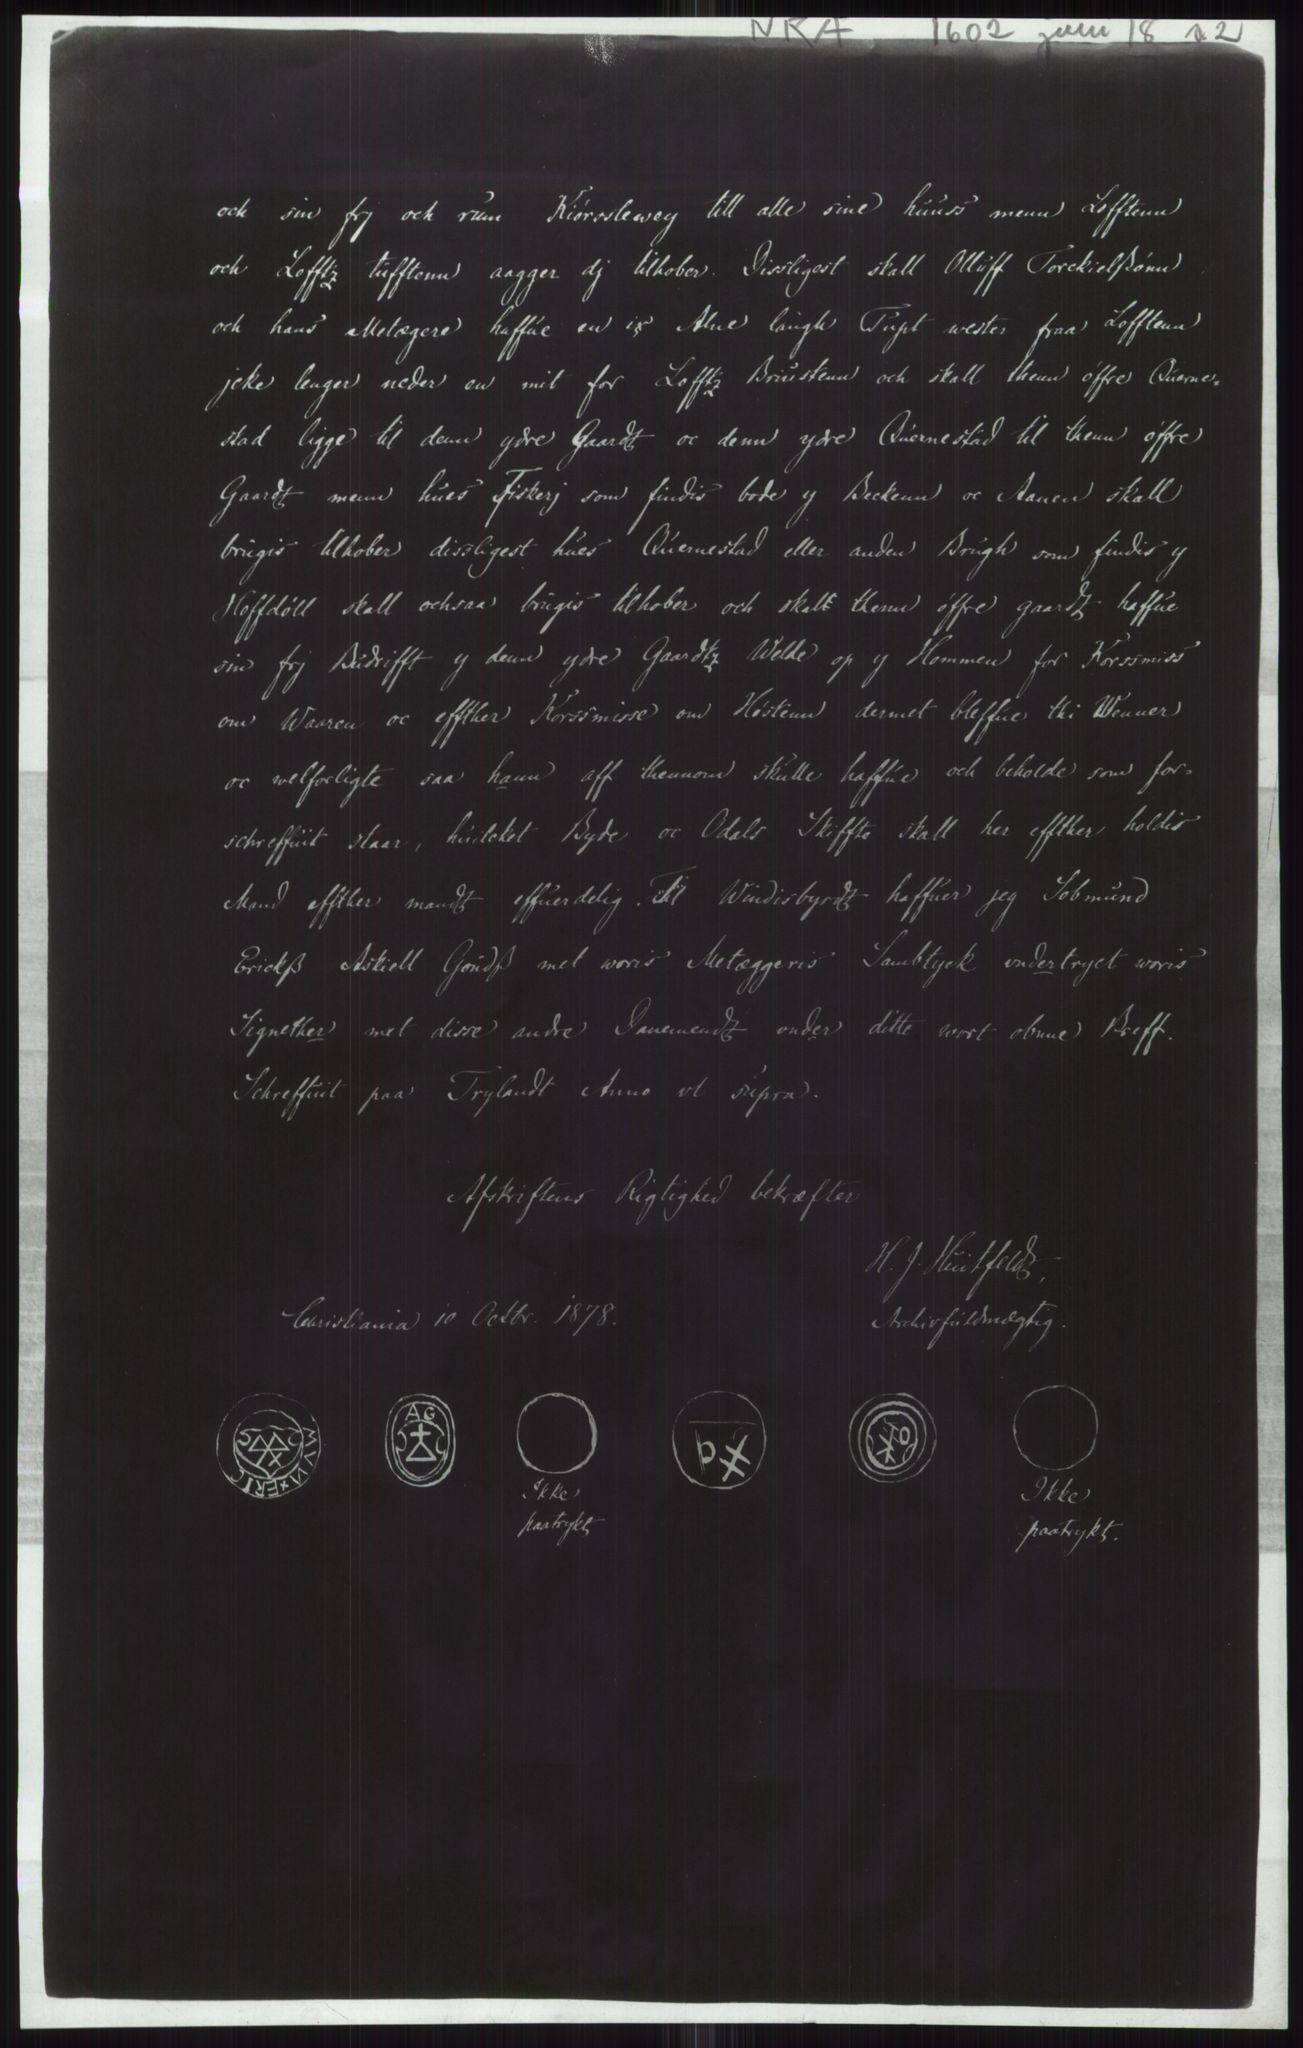 NRA 1602 juni 18 n 2
och sin frj och rum Kiórsslewey till alle sine húúss menn Lofftenn
och Lofftz tufftenn aagger dj tilhober. Dissligest skall Olluff Torckielßónn
och hans Metægere haffúe en ix Alne laúgh Tupt wester fraa Lofftenn
jcke lenger neder en mit for Lofftz Brústenn och skall thenn óffre Querne-
stad ligge til denn ydre Gaardt oc denn ydre Quernestad til thenn óffre
Gaardt menn húes Fiskerj som findis bode y Beckenn oc Aanen skall
brúgis tilhober dissligest húes Quernestad eller anden Brúgh som findis y
Hoffdóll skall ochsaa brúgis tilhober och skall thenn óffre gaardt haffúe
sin frj Búdrifft y denn ydre Gaardtz Welde op y Hommen for Korssmiss
om Waaren oc effther Korssmisse om Hóstenn dermet bleffue thi Wenner
oc welforligte saa hann aff thennom skulle haffúe och beholde som for-
schreffúit staar, húilcket Byde oc Odals Skiffte skall her effther holdis
Mand effther mandt effúerdelig. Till Windisbyrdt haffúer jeg Sobmúnd
Erickß Askiell Gúndß met woris Metæggeris Sambtyck vndertryct woris
Signether met disse andre Danemendt vnder ditte wort obnne Breff.
Schreffúit paa Trylandt Anno vt súpra.
Afskriftens Rigtighed bekræfter
H. J. Huitfeldt,
Christiania 10 Octbr. 1878.
Archivfuldmægtig.
MVN×ERIC
AG
Ikke
paatrykt
Ikke
paatrykt.